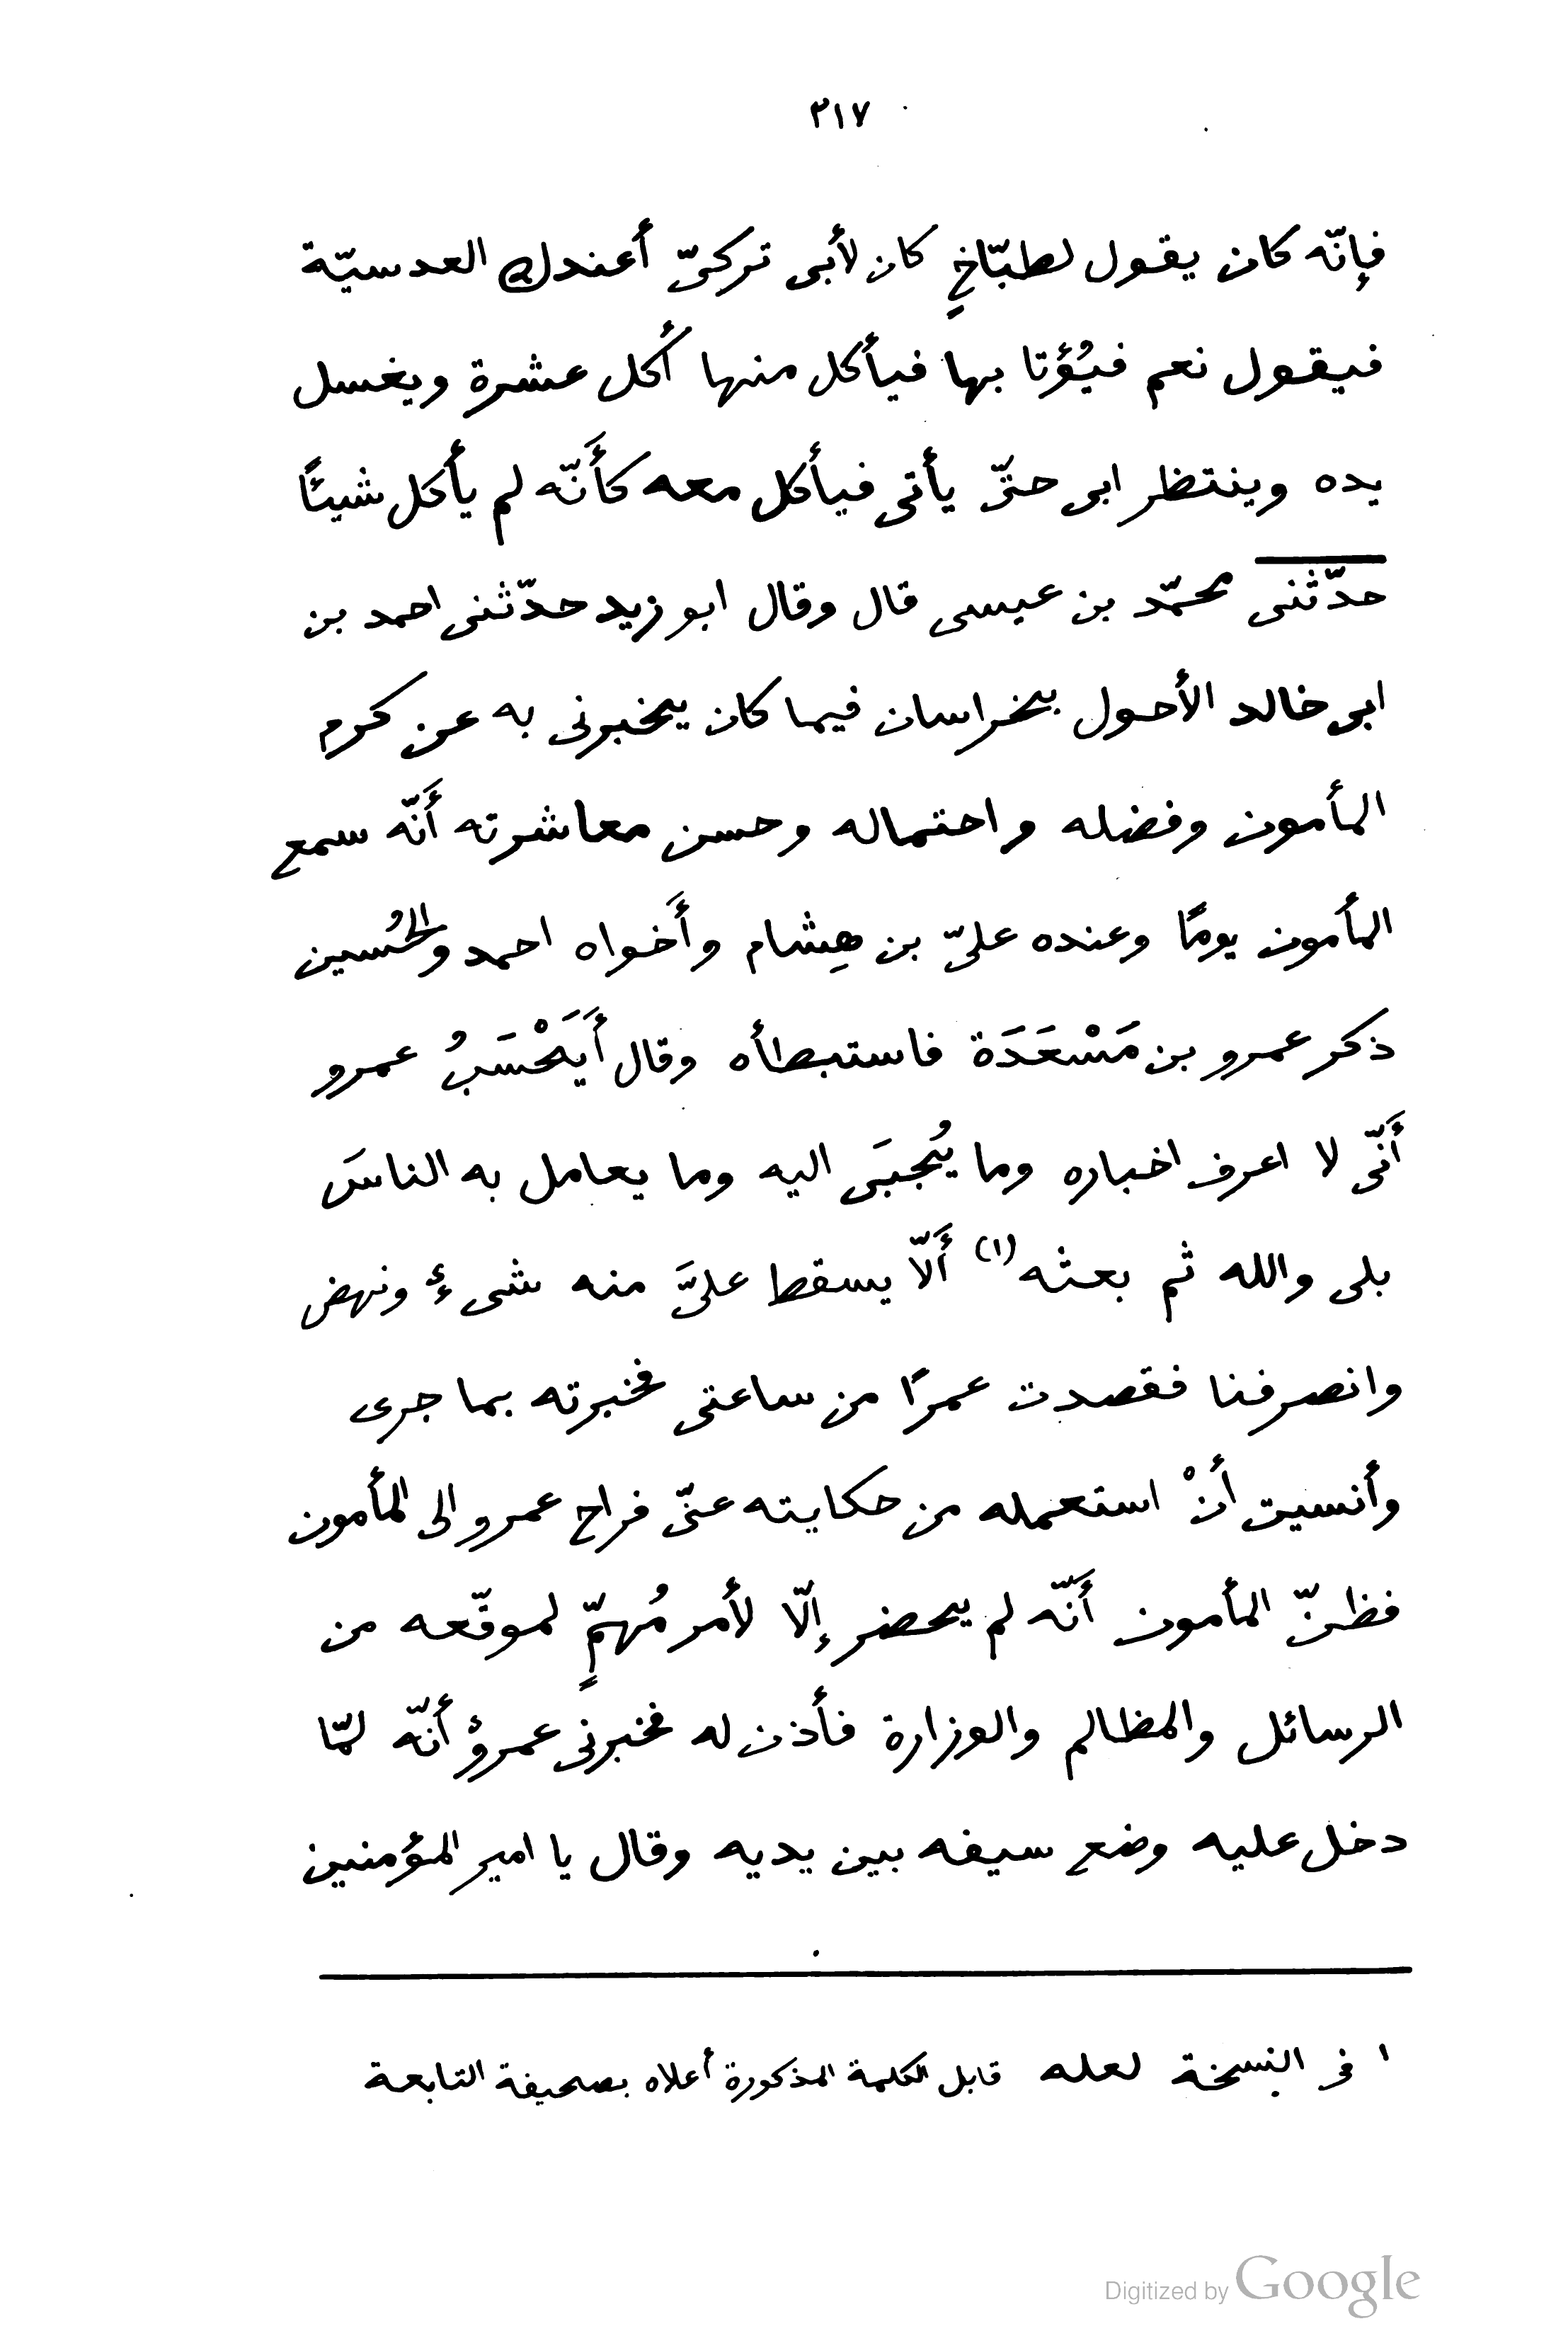 ٢١٧
فإنّه كان يقول لطبّاخٍ كان لأبى تركىّ أعندك العدسيّة
فيقول نعم فيُؤتا بها فيأكل منها أكل عشرة ويغسل
يده وينتظر ابى حتّى يأتى فيأكل معه كأَنّه لم يأكل شيئًا
حدّثنى محمّد بن عيسى قال وقال ابو زيد حدّثنى احمد بن
ابى خالد الأحول بخراسان فيما كان يخبرنى به عن كرم
المأمون وفضله واحتماله وحسن معاشرته أَنّه سمع
المأمون يومًا وعنده علىّ بن هِشام وأَخواه احمد والحُسين
ذكر عمرو بن مَسْعَدَة فاستبطأه وقال أَيَحْسَبُ عمرو
أَنّى لا اعرف اخباره وما يُجبَى اليه وما يعامل به الناسَ
بلى والله ثم بعثه (١) أَلّا يسقط علىَّ منه شىءٌ ونهض
وانصرفنا فقصدت عمرًا من ساعتى فخبرته بما جرى
وأنسيت أنْ استعمله من حكايته عنّى فراح عمرو الى المأمون
فظنّ المأمون أَنّه لم يحضر إلّا لأمر مُهمٍّ لموقعه من
الرسائل والمظالم والوزارة فأذن له فخبرنى عمروٌ أنّه لمّا
دخل عليه وضع سيفه بين يديه وقال يا امير المؤمنين
١ فى النسخة لعله قابل الكلمة المذكورة أعلاه بصحيفة التابعة
Digitized by Google